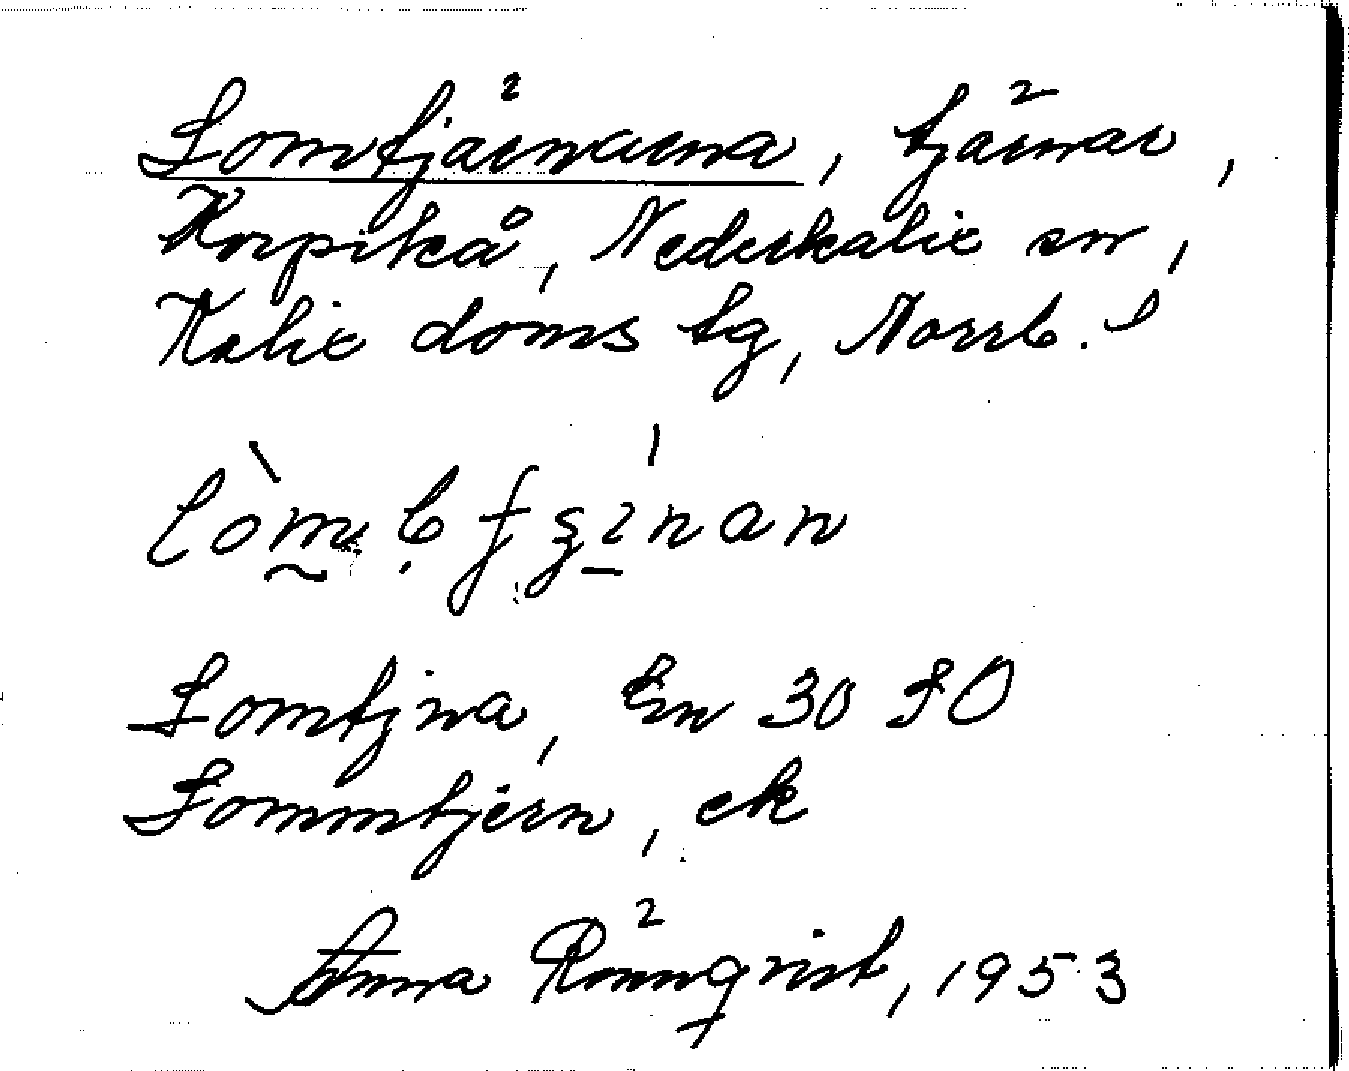 Lomtjärnarna, tjärnar,
Korpikå, Nederkalix sn,
Kalix doms tg, Norrb. l
Lomtjna, En 30 SO
Lommtjern, ek
Anna Rönnqvist, 1953